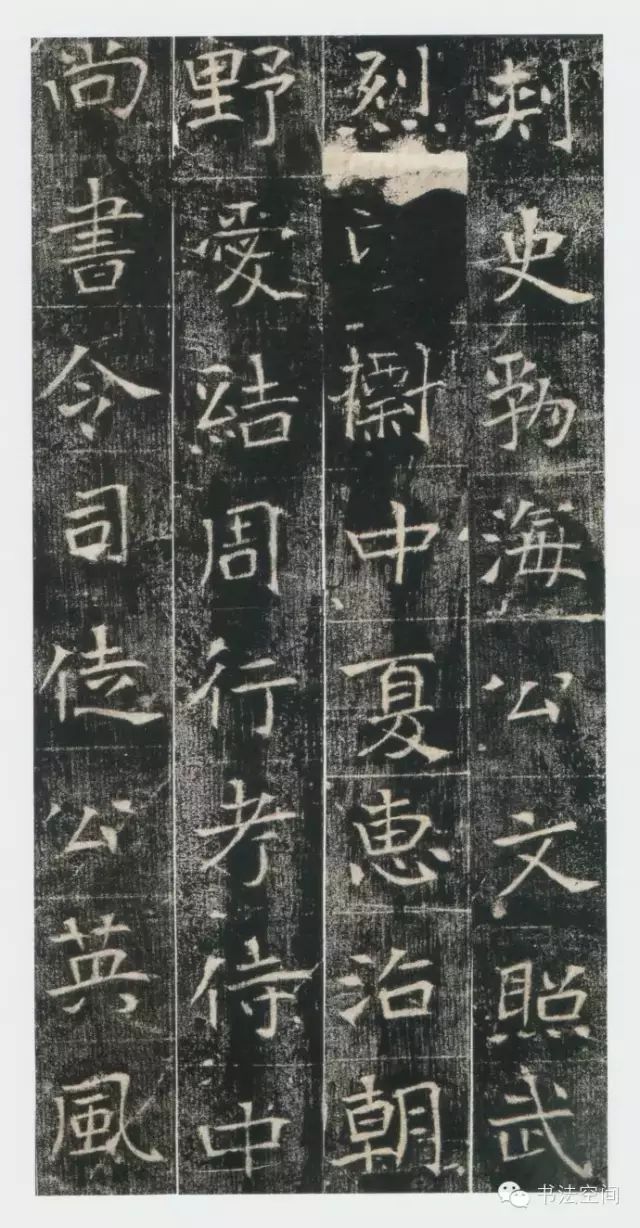 刺史勃海公文照武
烈中夏惠沾朝
野愛結周行考侍中
尚書令司徒公英風
书法空间